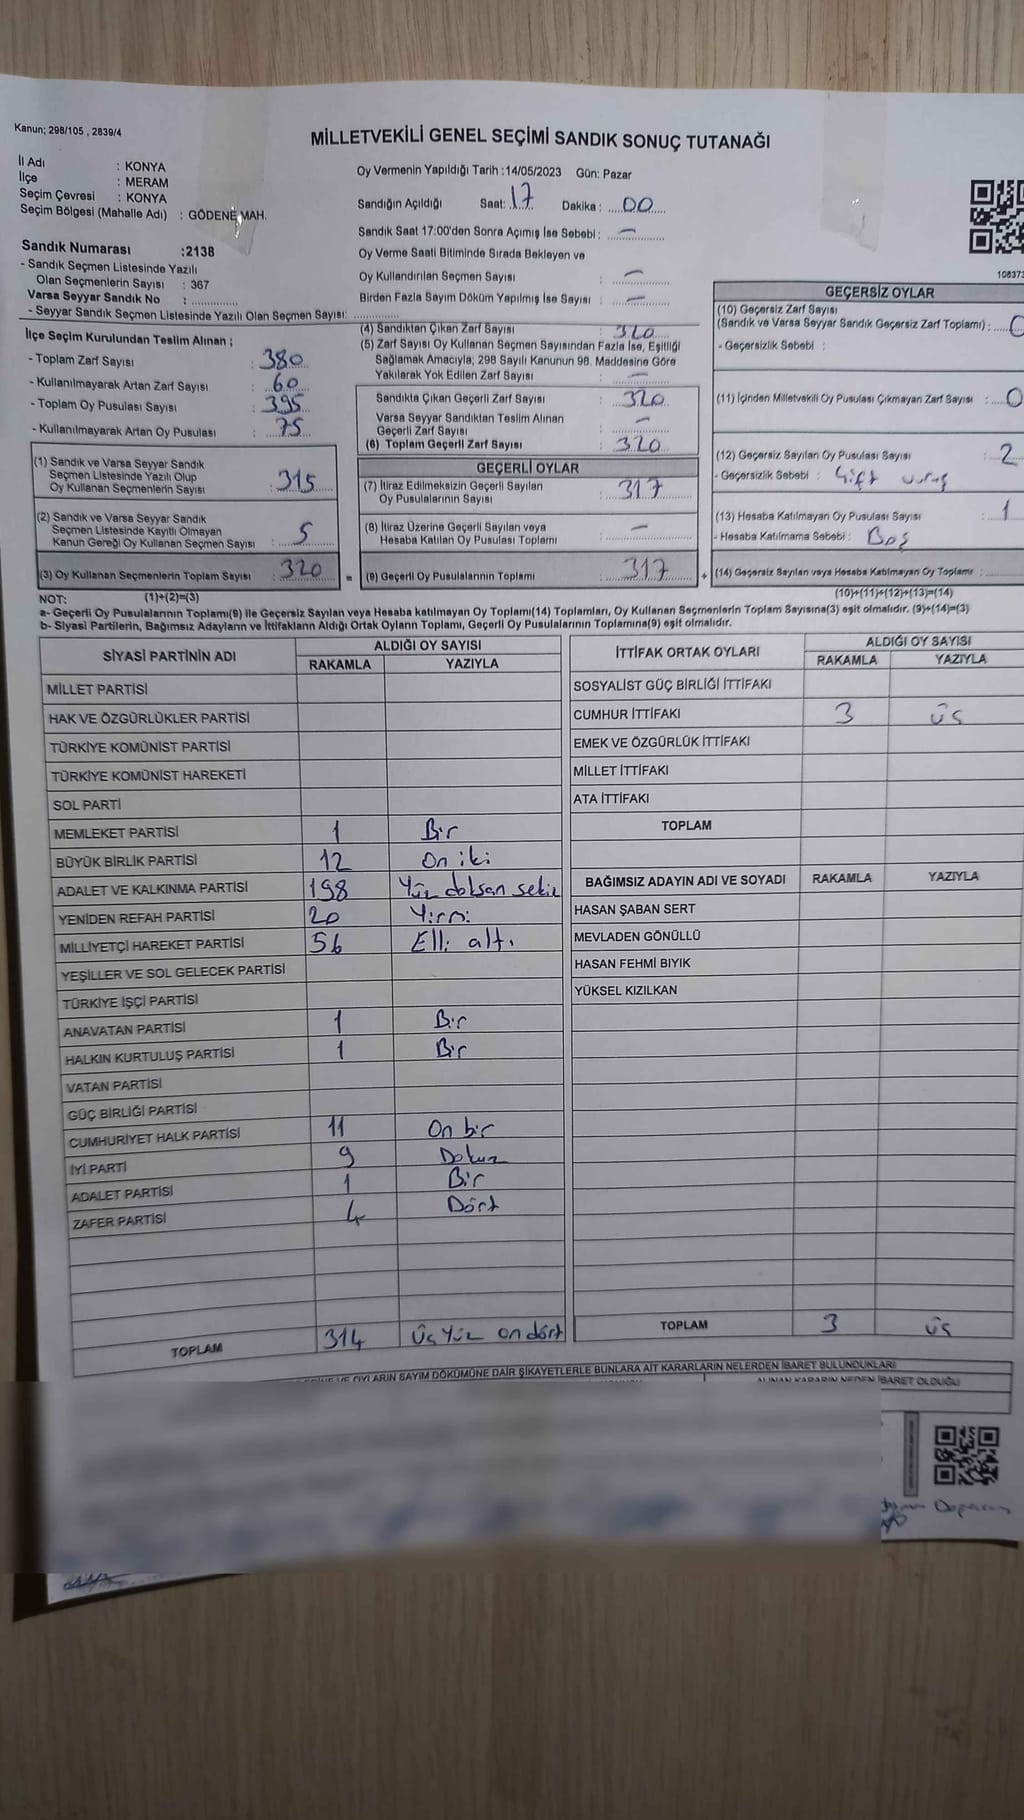 Kanun; 298/105 , 2839/4
MİLLETVEKİLİ GENEL SEÇİMİ SANDIK SONUÇ TUTANAĞI
İl Adı : KONYA
İlçe : MERAM
Seçim Çevresi : KONYA
Seçim Bölgesi (Mahalle Adı) : GÖDENE MAH.
Sandık Numarası :2138
- Sandık Seçmen Listesinde Yazılı
Olan Seçmenlerin Sayısı : 367
Varsa Seyyar Sandık No : ..............
- Seyyar Sandık Seçmen Listesinde Yazılı Olan Seçmen Sayısı: ..............
Oy Vermenin Yapıldığı Tarih :14/05/2023 Gün: Pazar
Sandığın Açıldığı Saat: 17 Dakika : 00
Sandık Saat 17:00'den Sonra Açımış İse Sebebi : —
Oy Verme Saati Bitiminde Sırada Bekleyen ve
Oy Kullandırılan Seçmen Sayısı : —
Birden Fazla Sayım Döküm Yapılmış İse Sayısı : —
108373
İlçe Seçim Kurulundan Teslim Alınan ;
- Toplam Zarf Sayısı : 380
- Kullanılmayarak Artan Zarf Sayısı : 60
- Toplam Oy Pusulası Sayısı : 395
- Kullanılmayarak Artan Oy Pusulası : 75
(1) Sandık ve Varsa Seyyar Sandık
Seçmen Listesinde Yazılı Olup
Oy Kullanan Seçmenlerin Sayısı : 315
(2) Sandık ve Varsa Seyyar Sandık
Seçmen Listesinde Kayıtlı Olmayan
Kanun Gereği Oy Kullanan Seçmen Sayısı : 5
(3) Oy Kullanan Seçmenlerin Toplam Sayısı : 320
(4) Sandıktan Çıkan Zarf Sayısı : 320
(5) Zarf Sayısı Oy Kullanan Seçmen Sayısından Fazla İse, Eşitliği
Sağlamak Amacıyla; 298 Sayılı Kanunun 98. Maddesine Göre
Yakılarak Yok Edilen Zarf Sayısı : —
Sandıkta Çıkan Geçerli Zarf Sayısı : 320
Varsa Seyyar Sandıktan Teslim Alınan
Geçerli Zarf Sayısı : —
(6) Toplam Geçerli Zarf Sayısı : 320
GEÇERLİ OYLAR
(7) İtiraz Edilmeksizin Geçerli Sayılan
Oy Pusulalarının Sayısı : 317
(8) İtiraz Üzerine Geçerli Sayılan veya
Hesaba Katılan Oy Pusulası Toplamı : —
= (9) Geçerli Oy Pusulalarının Toplamı : 317 +
GEÇERSİZ OYLAR
(10) Geçersiz Zarf Sayısı
(Sandık ve Varsa Seyyar Sandık Geçersiz Zarf Toplamı) : 0
- Geçersizlik Sebebi :
(11) İçinden Milletvekili Oy Pusulası Çıkmayan Zarf Sayısı : 0
(12) Geçersiz Sayılan Oy Pusulası Sayısı : 2
- Geçersizlik Sebebi : Çift vuruş
(13) Hesaba Katılmayan Oy Pusulası Sayısı : 1
- Hesaba Katılmama Sebebi : Boş
(14) Geçersiz Sayılan veya Hesaba Katılmayan Oy Toplamı :
NOT: (1)+(2)=(3) (10)+(11)+(12)+(13)=(14)
a- Geçerli Oy Pusulalarının Toplamı(9) ile Geçersiz Sayılan veya Hesaba katılmayan Oy Toplamı(14) Toplamları, Oy Kullanan Seçmenlerin Toplam Sayısına(3) eşit olmalıdır. (9)+(14)=(3)
b- Siyasi Partilerin, Bağımsız Adayların ve İttifakların Aldığı Ortak Oyların Toplamı, Geçerli Oy Pusulalarının Toplamına(9) eşit olmalıdır.
SİYASİ PARTİNİN ADI ALDIĞI OY SAYISI
RAKAMLA YAZIYLA
MİLLET PARTİSİ
HAK VE ÖZGÜRLÜKLER PARTİSİ
TÜRKİYE KOMÜNİST PARTİSİ
TÜRKİYE KOMÜNİST HAREKETİ
SOL PARTİ
MEMLEKET PARTİSİ 1 Bir
BÜYÜK BİRLİK PARTİSİ 12 On iki
ADALET VE KALKINMA PARTİSİ 198 Yüz doksan sekiz
YENİDEN REFAH PARTİSİ 20 Yirmi
MİLLİYETÇİ HAREKET PARTİSİ 56 Elli altı
YEŞİLLER VE SOL GELECEK PARTİSİ
TÜRKİYE İŞÇİ PARTİSİ
ANAVATAN PARTİSİ 1 Bir
HALKIN KURTULUŞ PARTİSİ 1 Bir
VATAN PARTİSİ
GÜÇ BİRLİĞİ PARTİSİ
CUMHURİYET HALK PARTİSİ 11 On bir
İYİ PARTİ 9 Dokuz
ADALET PARTİSİ 1 Bir
ZAFER PARTİSİ 4 Dört
TOPLAM 314 Üç Yüz on dört
İTTİFAK ORTAK OYLARI ALDIĞI OY SAYISI
RAKAMLA YAZIYLA
SOSYALİST GÜÇ BİRLİĞİ İTTİFAKI
CUMHUR İTTİFAKI 3 üç
EMEK VE ÖZGÜRLÜK İTTİFAKI
MİLLET İTTİFAKI
ATA İTTİFAKI
TOPLAM
BAĞIMSIZ ADAYIN ADI VE SOYADI RAKAMLA YAZIYLA
HASAN ŞABAN SERT
MEVLADEN GÖNÜLLÜ
HASAN FEHMİ BIYIK
YÜKSEL KIZILKAN
TOPLAM 3 üç
VE OYLARIN SAYIM DÖKÜMÜNE DAİR ŞİKAYETLERLE BUNLARA AİT KARARLARIN NELERDEN İBARET BULUNDUKLARI
ALINAN KARARIN NEDEN İBARET OLDUĞU